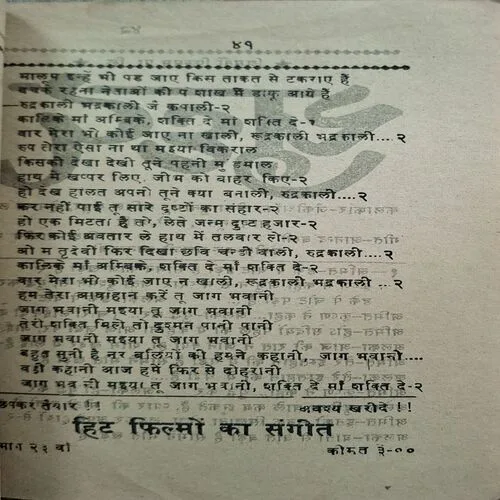 ४१
मालूम इन्हें भी पड जाए किस ताकत से टकराए हैं
बचके रहना नेताओं की पोशाख में डाकू आये हैं
रुद्रकाली भद्रकाली जै कपाली-२
कालिके माँ अम्बिके, शक्ति दे माँ शक्ति दे-२
वार मेरा भी कोई जाए ना खाली, रूद्रकाली भद्रकाली....२
रुप तेरा ऐसा ना था मइया विकराल
किसकी देखा देखी तूने पहनी मुंडमाल
हाथ मे खप्पर लिए, जीभ को बाहर किए-२
हो देख हालत अपनी तूने क्या बनाली, रुद्रकाली....२
कर नहीं पाई तु सारे दुष्टों का संहार-२
हो एक मिटता है तो, लेते जन्म दुष्ट हजार-२
फिर कोई अवतार ले हाथ में तलवार ले-२
ओ मातृदेवी फिर दिखा छवि चन्डी वाली, रुद्रकाली....२
कालिके माँ अम्बिके, शक्ति दे माँ शक्ति दे-२
वार मेरा भी कोई जाए न खाली, रूद्रकाली भद्रकाली ..२
हम तेरा आवाहान करें तू जाग भवानी
जाग भवानी मइया तू जाग भवानी
तेरी शक्ति मिले तो दुश्मन पानी पानी
जाग भवानी मइया तू जाग भवानी
बहुत सुनी है नर बलियों की हमने कहानी, जाग भवानी....
वही कहानी आज हमें फिर से दोहरानी
जाग भवानी मइया तू जाग भवानी, शक्ति दे माँ शक्ति दे-२
छपकर तैयार !! अवश्य खरीदें !!
हिट फिल्मों का संगीत
भाग २३ वाँ कीमत ३-००